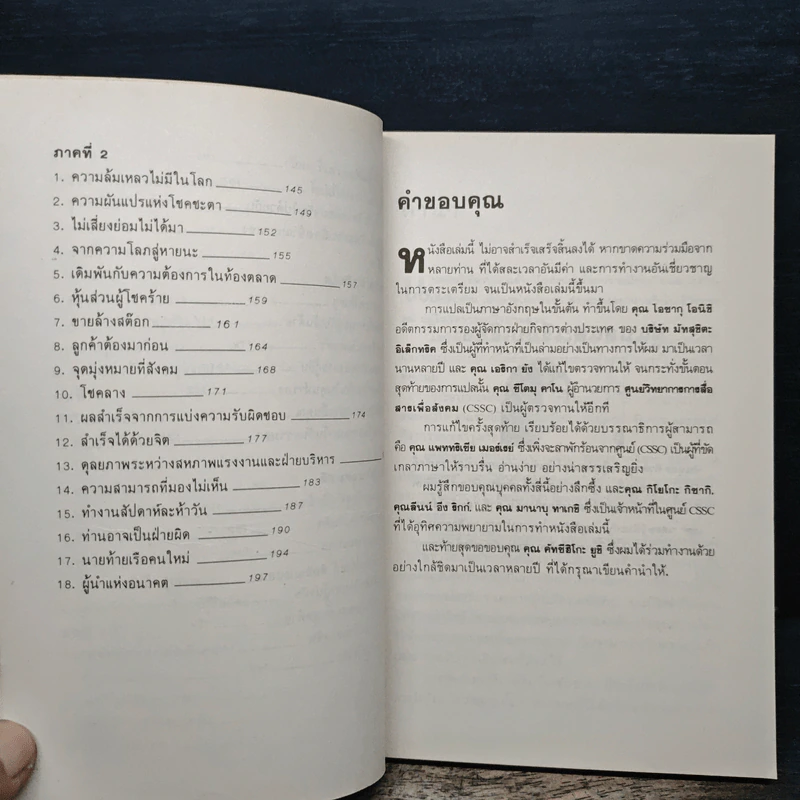 ภาคที่ 2
1. ความล้มเหลวไม่มีในโลก 145
2. ความผันแปรแห่งโชคชะตา 149
3. ไม่เสี่ยงย่อมไม่ได้มา 152
4. จากความโลภสู่หายนะ 155
5. เดิมพันกับความต้องการในท้องตลาด 157
6. หุ้นส่วนผู้โชคร้าย 159
7. ขายล้างสต๊อก 161
8. ลูกค้าต้องมาก่อน 164
9. จุดมุ่งหมายที่สังคม 168
10. โชคลาง 171
11. ผลสำเร็จจากการแบ่งความรับผิดชอบ 174
12. สำเร็จได้ด้วยจิต 177
13. ดุลยภาพระหว่างสหภาพแรงงานและฝ่ายบริหาร
14. ความสามารถที่มองไม่เห็น 183
15. ทำงานสัปดาห์ละห้าวัน 187
16. ท่านอาจเป็นฝ่ายผิด 190
17. นายท้ายเรือคนใหม่ 194
18. ผู้นำแห่งอนาคต 197
คำขอบคุณ
หนังสือเล่มนี้ ไม่อาจสำเร็จเสร็จสิ้นลงได้ หากขาดความร่วมมือจาก
หลายท่าน ที่ได้สละเวลาอันมีค่า และการทำงานอันเชี่ยวชาญ
ในการตระเตรียม จนเป็นหนังสือเล่มนี้ขึ้นมา
การแปลเป็นภาษาอังกฤษในขั้นต้น ทำขึ้นโดย คุณ โอซากุ โอนิชิ
อดีตกรรมการรองผู้จัดการฝ่ายกิจการต่างประเทศ ของ บริษัท มัทสุชิตะ
อิเล็กทริค ซึ่งเป็นผู้ที่ทำหน้าที่เป็นล่ามอย่างเป็นทางการให้ผม มาเป็นเวลา
นานหลายปี และ คุณ เอธิกา ยัง ได้แก้ไขตรวจทานให้ จนกระทั่งขั้นตอน
สุดท้ายของการแปลนั้น คุณ ชิโตมุ คาโน ผู้อำนวยการ ศูนย์วิทยาการการสื่อ
สารเพื่อสังคม (CSSC) เป็นผู้ตรวจทานให้อีกที
การแก้ไขครั้งสุดท้าย เรียบร้อยได้ด้วยบรรณาธิการผู้สามารถ
คือ คุณ แพททริเซีย เมอร์เรย์ ซึ่งเพิ่งจะลาพักร้อนจากศูนย์ (CSSC) เป็นผู้ขัด
เกลาภาษาให้ราบรื่น อ่านง่าย อย่างน่าสรรเสริญยิ่ง
ผมรู้สึกขอบคุณบุคคลทั้งสี่นี้อย่างลึกซึ้ง และคุณ กิโยโกะ กิชากิ.
คุณลินน์ อีง ธิกก์. และ คุณ มานาบุ ทาเกธิ ซึ่งเป็นเจ้าหน้าที่ในศูนย์ CSSC
ที่ได้อุทิศความพยายามในการทำหนังสือเล่มนี้
และท้ายสุดขอขอบคุณ คุณ คัทซึฮิโกะ ยูธิ ซึ่งผมได้ร่วมทำงานด้วย
อย่างใกล้ชิดมาเป็นเวลาหลายปี ที่ได้กรุณาเขียนคำนำให้.